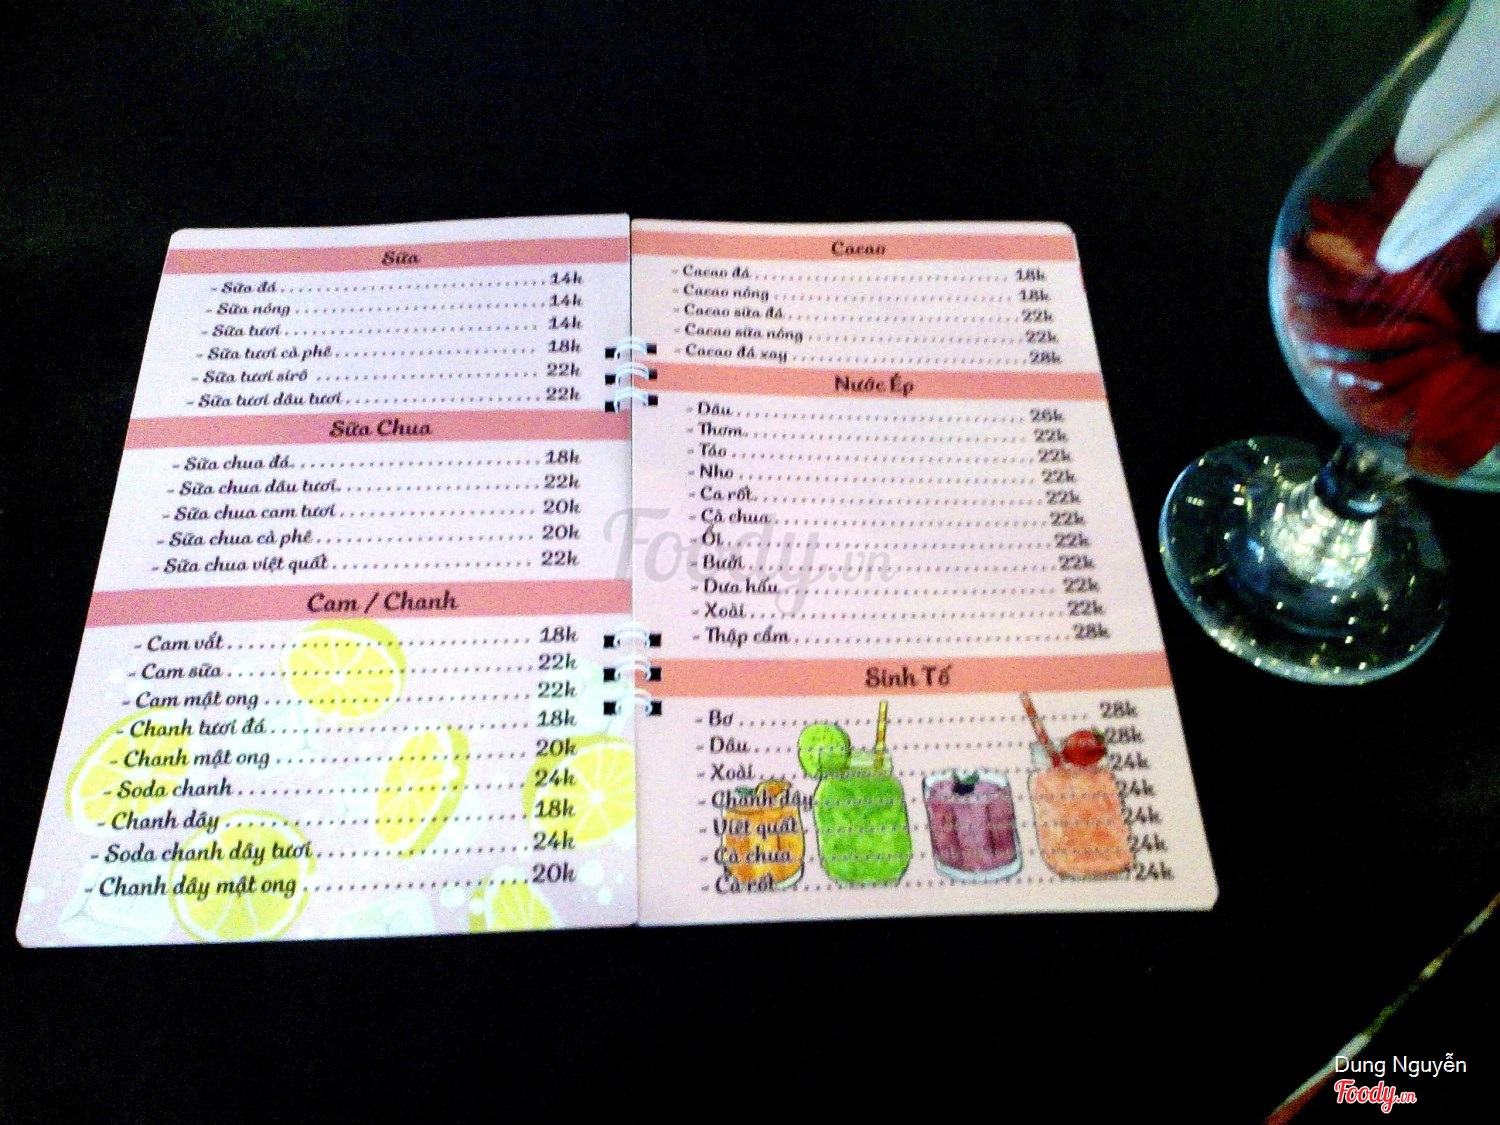 Sữa
- Sữa đá 14k
- Sữa nóng 14k
- Sữa tươi 14k
- Sữa tươi cà phê 18k
- Sữa tươi sirô 22k
- Sữa tươi dâu tươi 22k
Sữa Chua
- Sữa chua đá 18k
- Sữa chua dâu tươi 22k
- Sữa chua cam tươi 20k
- Sữa chua cà phê 20k
- Sữa chua việt quất 22k
Cam / Chanh
- Cam vắt 18k
- Cam sữa 22k
- Cam mật ong 22k
- Chanh tươi đá 18k
- Chanh mật ong 20k
- Soda chanh 24k
- Chanh dây 18k
- Soda chanh dây tươi 24k
- Chanh dây mật ong 20k
Cacao
- Cacao đá 18k
- Cacao nóng 18k
- Cacao sữa đá 22k
- Cacao sữa nóng 22k
- Cacao đá xay 28k
Nước Ép
- Dâu 26k
- Thơm 22k
- Táo 22k
- Nho 22k
- Ca rốt 22k
- Cà chua 22k
- Ổi 22k
- Bưởi 22k
- Dưa hấu 22k
- Xoài 22k
- Thập cẩm 28k
Sinh Tố
- Bơ 28k
- Dâu 28k
- Xoài 24k
- Chanh dây 24k
- Việt quất 24k
- Cà chua 24k
- Cà rốt 24k
Foody.vn
Dung Nguyễn
Foody.vn